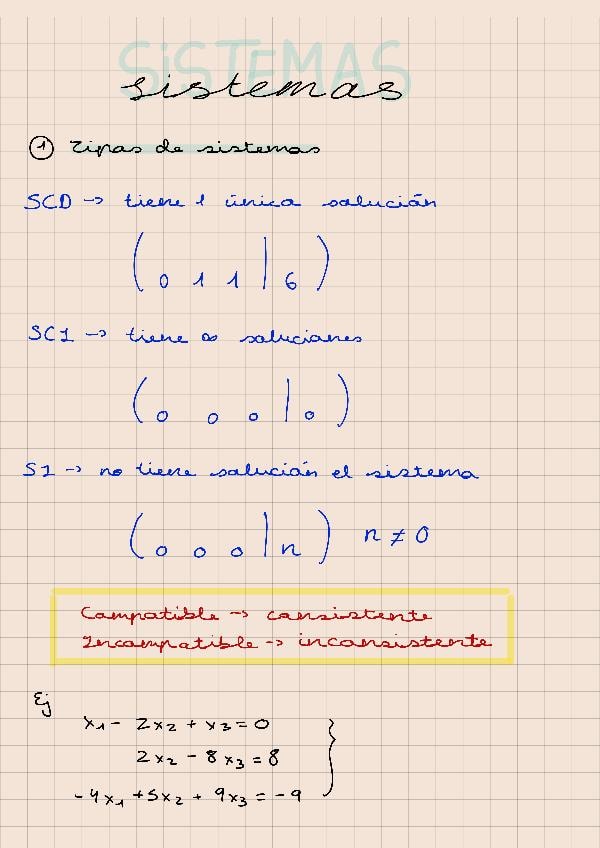 SISTEMAS
sistemas
① Tipos de sistemas
SCD → tiene 1 única solución
( 0 1 1 | 6 )
SCI → tiene ∞ soluciones
( 0 0 0 | 0 )
SI → no tiene solución el sistema
( 0 0 0 | n ) n ≠ 0
Compatible → consistente
Incompatible → inconsistente
Ej
x₁ - 2x₂ + x₃ = 0
2x₂ - 8x₃ = 8
-4x₁ + 5x₂ + 9x₃ = -9